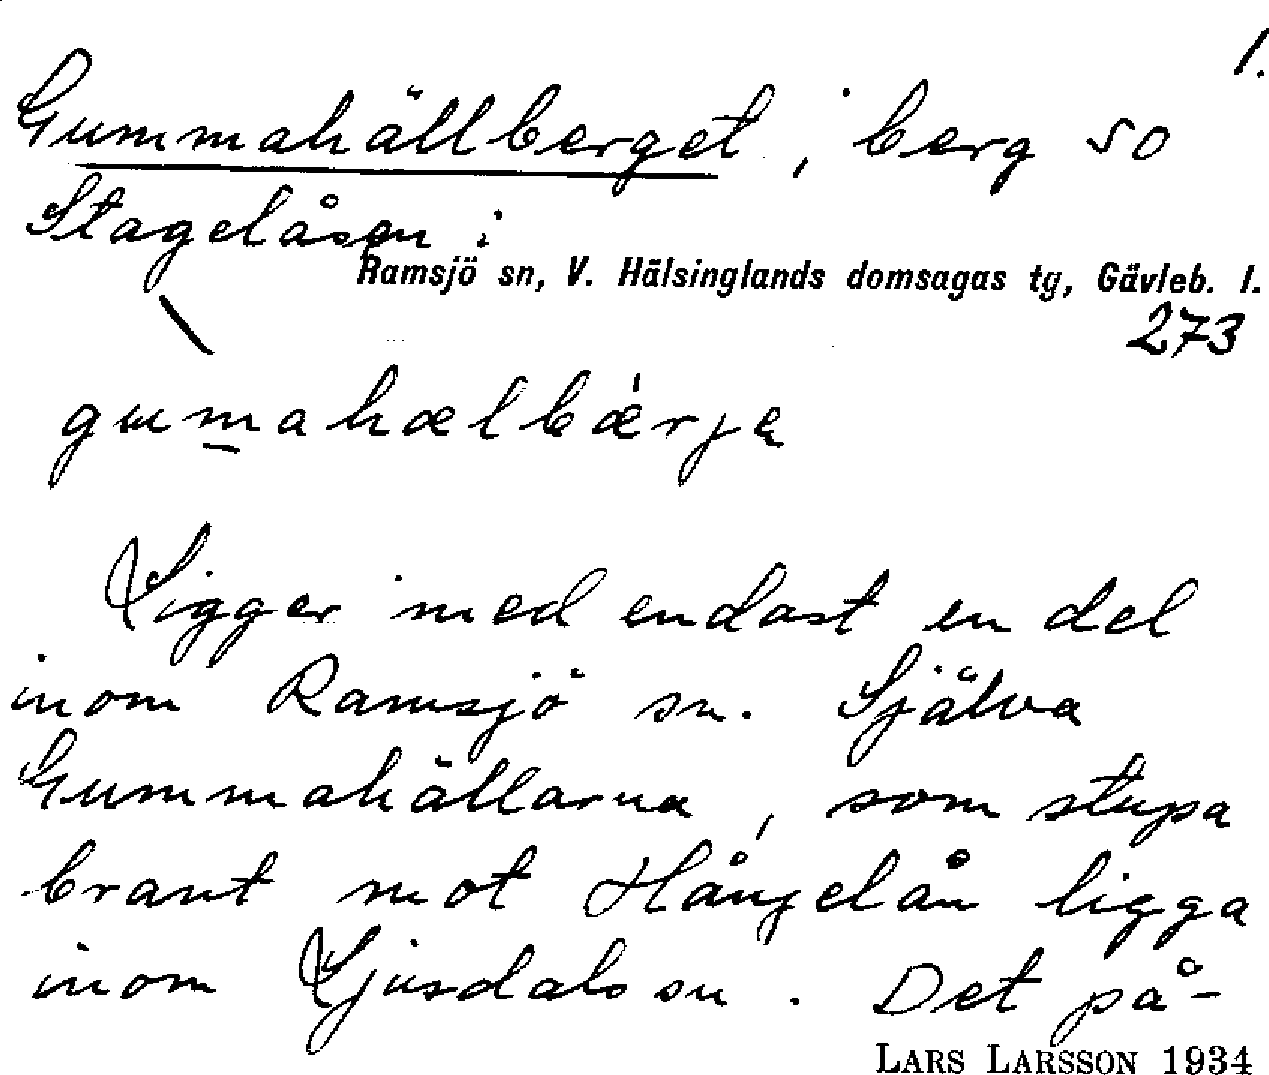 1.
Gummahällberget, berg SO
Stagelåsen i
Ramsjö sn, V. Hälsinglands domsagas tg, Gävleb. l.
273
gumahælbærje
Ligger med endast en del
inom Ramsjö sn. Själva
Gummahällarna, som stupa
brant mot Hångelån ligga
inom Ljusdals sn. Det på-
LARS LARSSON 1934